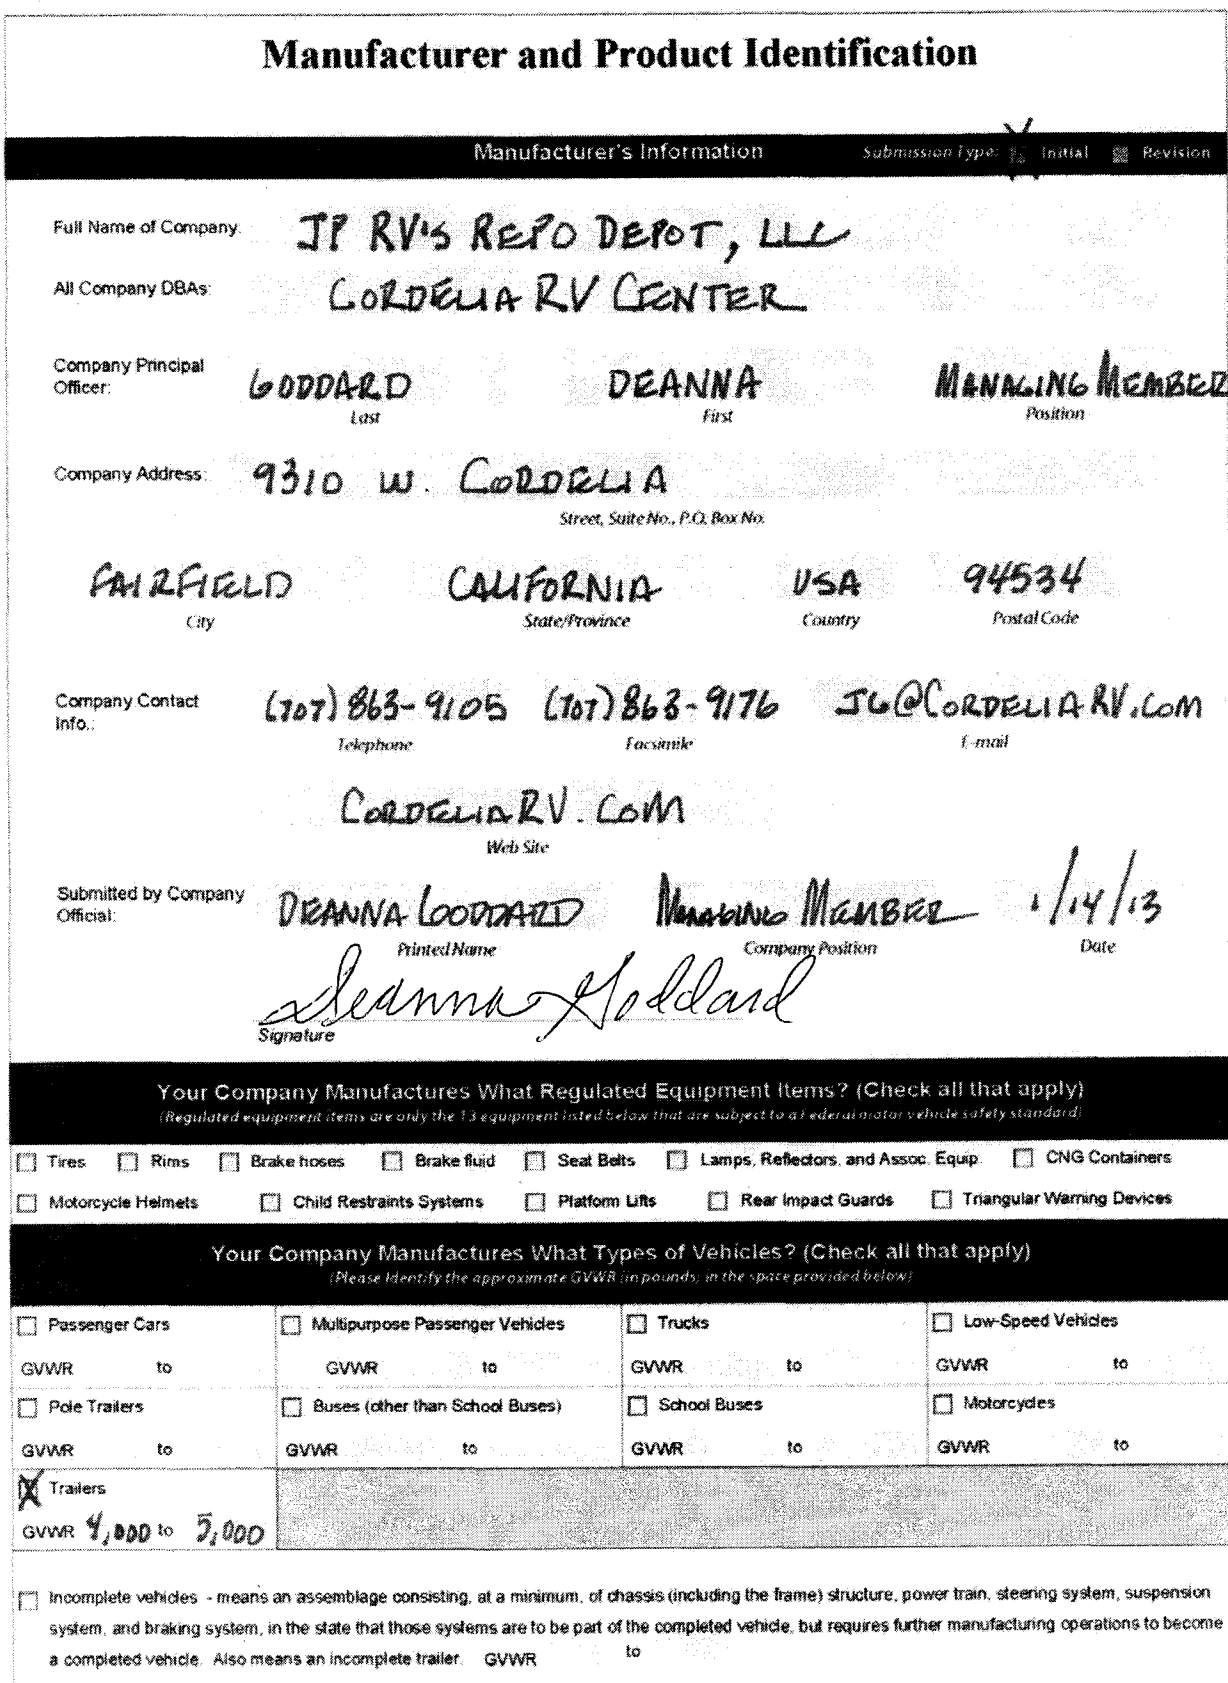 Manufacturer and Product Identification
Manufacturer's Information Submission Type: Initial Revision
Full Name of Company: JP RV'S REPO DEPOT, LLC
All Company DBAs: CORDELIA RV CENTER
Company Principal Officer: GODDARD DEANNA MANAGING MEMBER
Last First Position
Company Address: 9310 W. CORDELIA
Street, Suite No., P.O. Box No.
FAIRFIELD CALIFORNIA USA 94534
City State/Province Country Postal Code
Company Contact Info.: (707) 863-9105 (707) 863-9176 JG@CORDELIARV.COM
Telephone Facsimile E-mail
CORDELIARV.COM
Web Site
Submitted by Company Official: DEANNA GODDARD MANAGING MEMBER 1/14/13
Printed Name Company Position Date
Deanna Goddard
Signature
Your Company Manufactures What Regulated Equipment Items? (Check all that apply)
(Regulated equipment items are only the 13 equipment listed below that are subject to a Federal motor vehicle safety standard)
Tires Rims Brake hoses Brake fluid Seat Belts Lamps, Reflectors, and Assoc. Equip. CNG Containers
Motorcycle Helmets Child Restraints Systems Platform Lifts Rear Impact Guards Triangular Warning Devices
Your Company Manufactures What Types of Vehicles? (Check all that apply)
(Please Identify the approximate GVWR (in pounds) in the space provided below)
Passenger Cars Multipurpose Passenger Vehicles Trucks Low-Speed Vehicles
GVWR to GVWR to GVWR to GVWR to
Pole Trailers Buses (other than School Buses) School Buses Motorcycles
GVWR to GVWR to GVWR to GVWR to
X Trailers
GVWR 4,000 to 5,000
Incomplete vehicles - means an assemblage consisting, at a minimum, of chassis (including the frame) structure, power train, steering system, suspension
system, and braking system, in the state that those systems are to be part of the completed vehicle, but requires further manufacturing operations to become
a completed vehicle. Also means an incomplete trailer. GVWR to